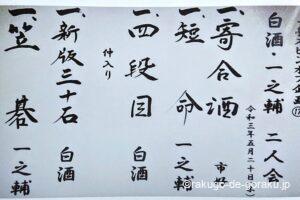 白酒・一之輔 二人会
令和三年五月二十日(木)
一、寄合酒 市好
一、短命 一之輔
一、四段目 白酒
仲入り
一、新版三十石 白酒
一、笠碁 一之輔
©rakugo-de-goraku.jp